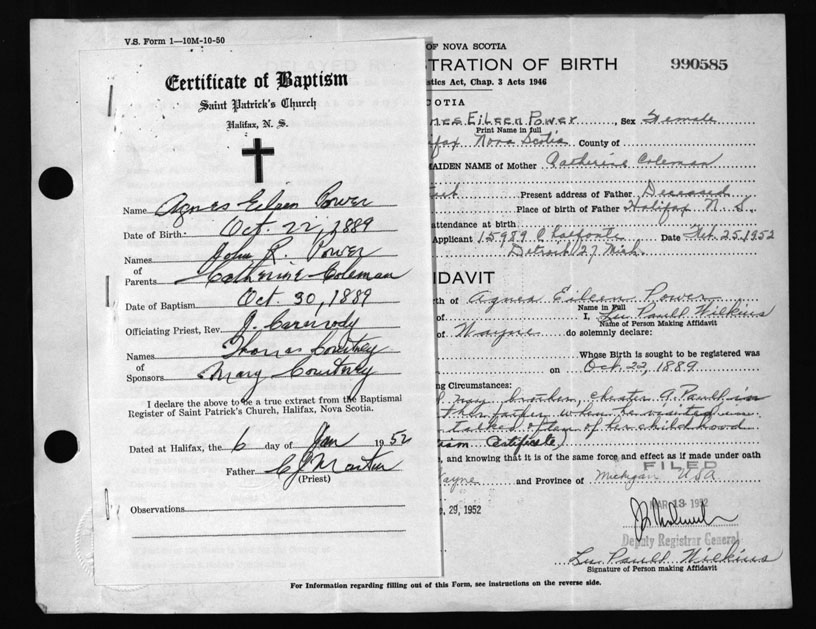 V.S. Form 1—10M-10-50
Certificate of Baptism
Saint Patrick's Church
Halifax, N. S.
Name Agnes Eileen Power
Date of Birth Oct. 22, 1889
Names John R. Power
of
Parents Catherine Coleman
Date of Baptism Oct. 30, 1889
Officiating Priest, Rev. J. Carmody
Names Thomas Courtney
of
Sponsors Mary Courtney
I declare the above to be a true extract from the Baptismal
Register of Saint Patrick's Church, Halifax, Nova Scotia.
Dated at Halifax, the 6 day of Jan 1952
Father C J Martin
(Priest)
Observations
OF NOVA SCOTIA
TRATION OF BIRTH 990585
stics Act, Chap. 3 Acts 1946
COTIA
nes Eileen Power, Sex Female
Print Name in full
ifax Nova Scotia County of
MAIDEN NAME of Mother Catherine Coleman
Present address of Father Deceased
Place of birth of Father Halifax N. S.
attendance at birth
Applicant 15989 Chalfonte Date Feb. 25, 1952
Detroit 27, Mich.
IDAVIT
rth of Agnes Eileen Power
Name in Full
of I, Lu Paull Wilkins
Name of Person Making Affidavit
of Wayne do solemnly declare:
Whose Birth is sought to be registered was
on Oct 22, 1889
ng Circumstances:
my brother, Chester A. Paull in
her father when he visited in
talked often of her childhood
ism Certificate)
e, and knowing that it is of the same force and effect as if made under oath
Wayne and Province of Michigan USA
FILED
MAR 13 1952
. 29, 1952
Deputy Registrar General
Lu Paull Wilkins
Signature of Person making Affidavit
For Information regarding filling out of this Form, see instructions on the reverse side.